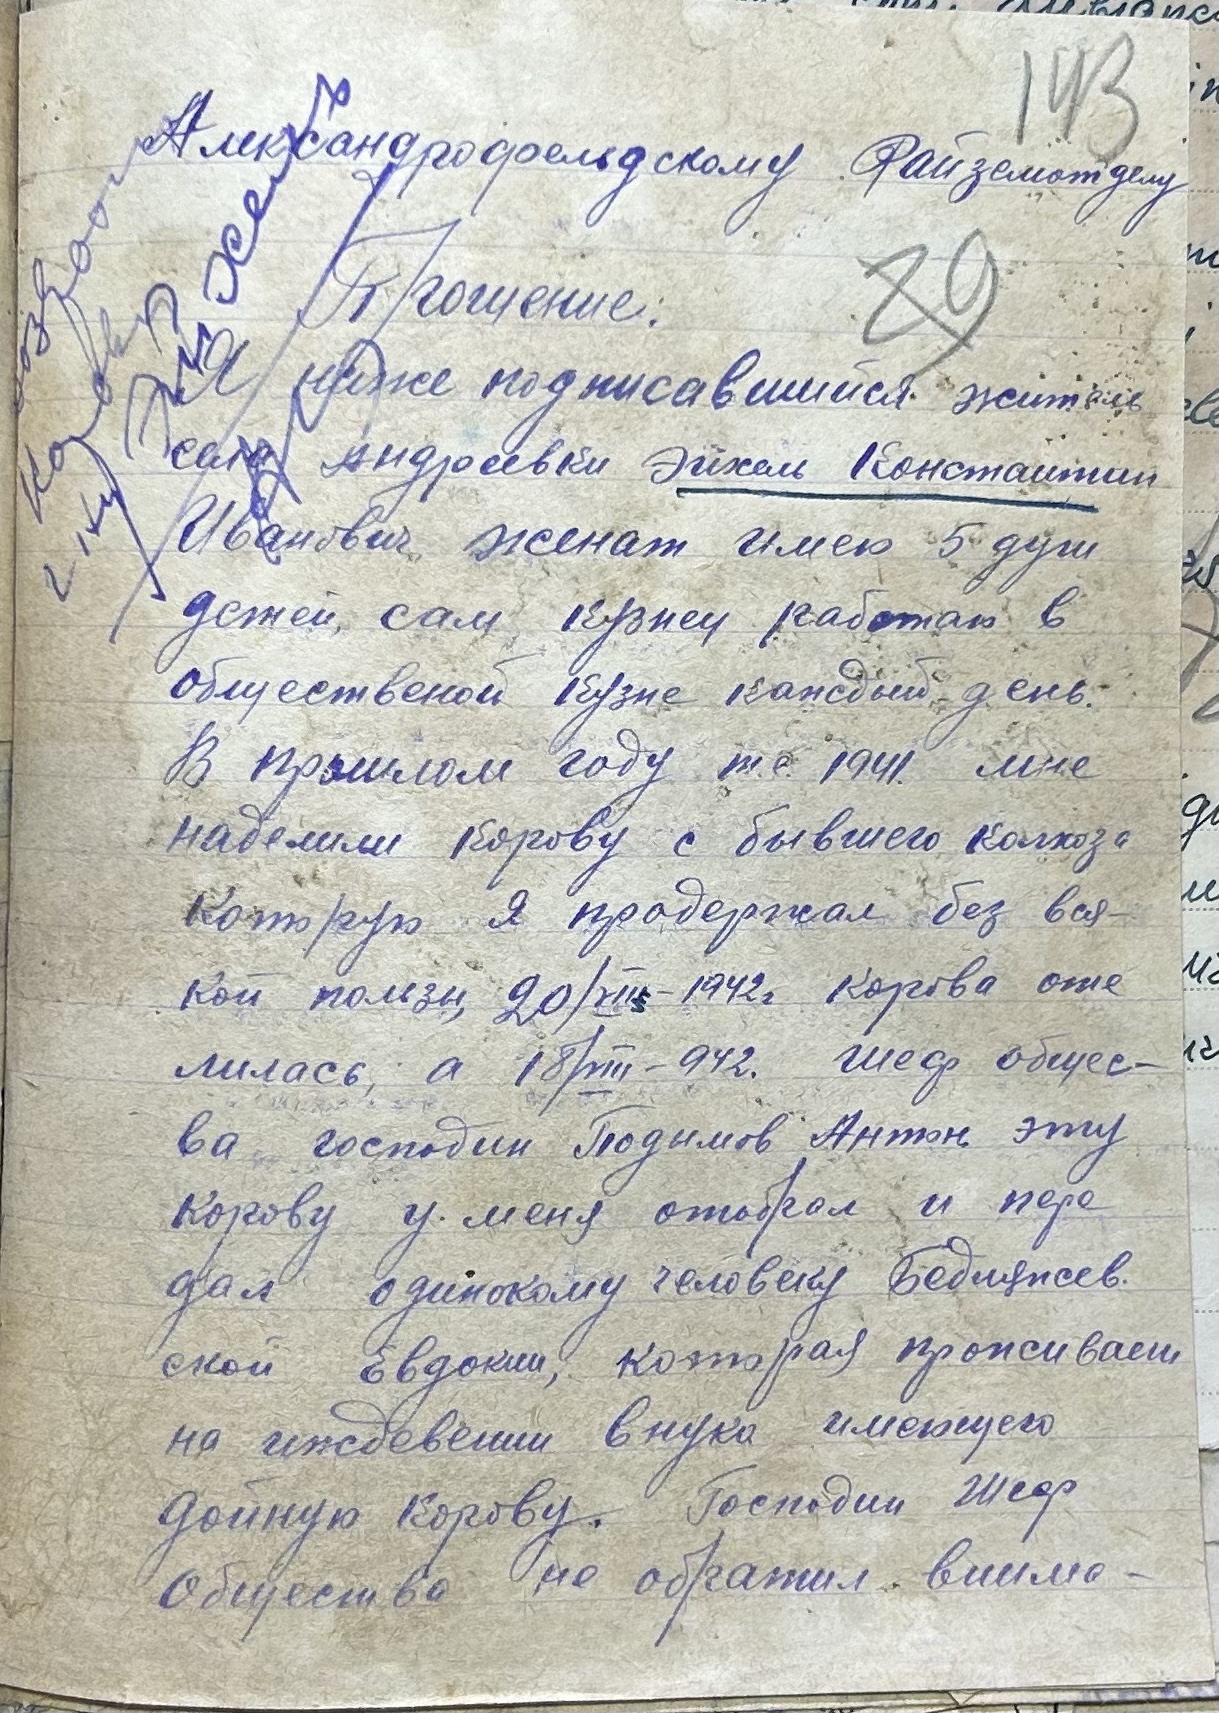 143
Александрофельдскому Райземотделу
29
Прошение.
Я ниже подписавшийся житель
села Андреевки Эйхель Константин
Иванович женат имею 5 душ
детей, сам кузнец работаю в
общественой кузне каждый день.
В прошлом году т.е. 1941. мне
наделили корову с бывшего колхоза
которую я продержал без вся-
кой ползы, 20/VIII-1942г корова оте
лилась, а 18/VIII-942. Шеф общес-
ва господин Подымов Антон эту
корову у меня отобрал и пере
дал одинокому человеку Бедняжев.
ской Евдокии, которая проживает
на иждевении внука имеющего
дойную корову. Господин Шеф
Общества не обратил внима-
возврат
корову
г-ну Эйхель